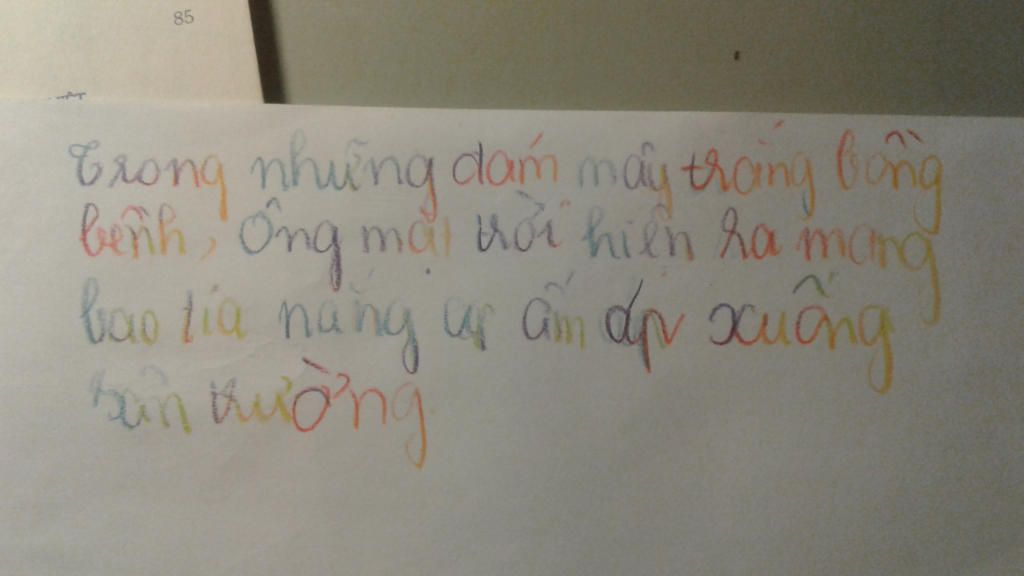 85
Trong những dám mây trắng bồng
bềnh, Ông mặt trời hiện ra mang
bao tia nắng ấm áp xuống
sân trường.